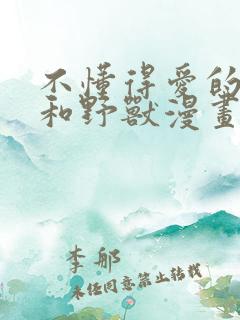 不懂得愛的
和野獸漫畫
李郍
未经同意禁止转载